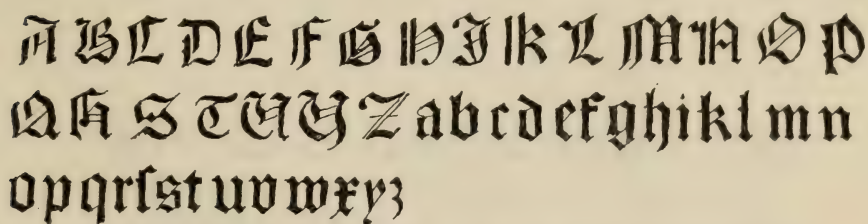 A B C D E F G H I K L M N O P
Q R S T U Y Z a b c d e f g h i k l m n
o p q r ſ s t u v w x y z